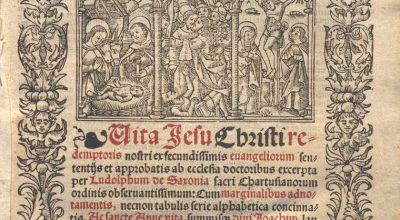 Uita Jesu Christi re
demptoris nostri ex fecundissimis euangeliorum sen-
tentijs et approbatis ab ecclesia doctoribus excerpta
per Ludolphum de Saxonia sacri Chartusianorum
ordinis obseruantissimum: Cum marginalibus adno-
tamentis, necnon tabulis serie alphabetica concinna-
tis. Ac sancte Anne vita summisque diui Joachim